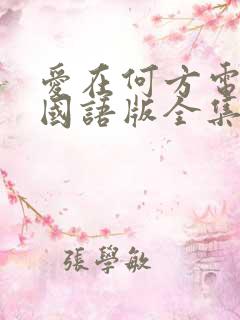 愛在何方電
國語版全集
張學敏